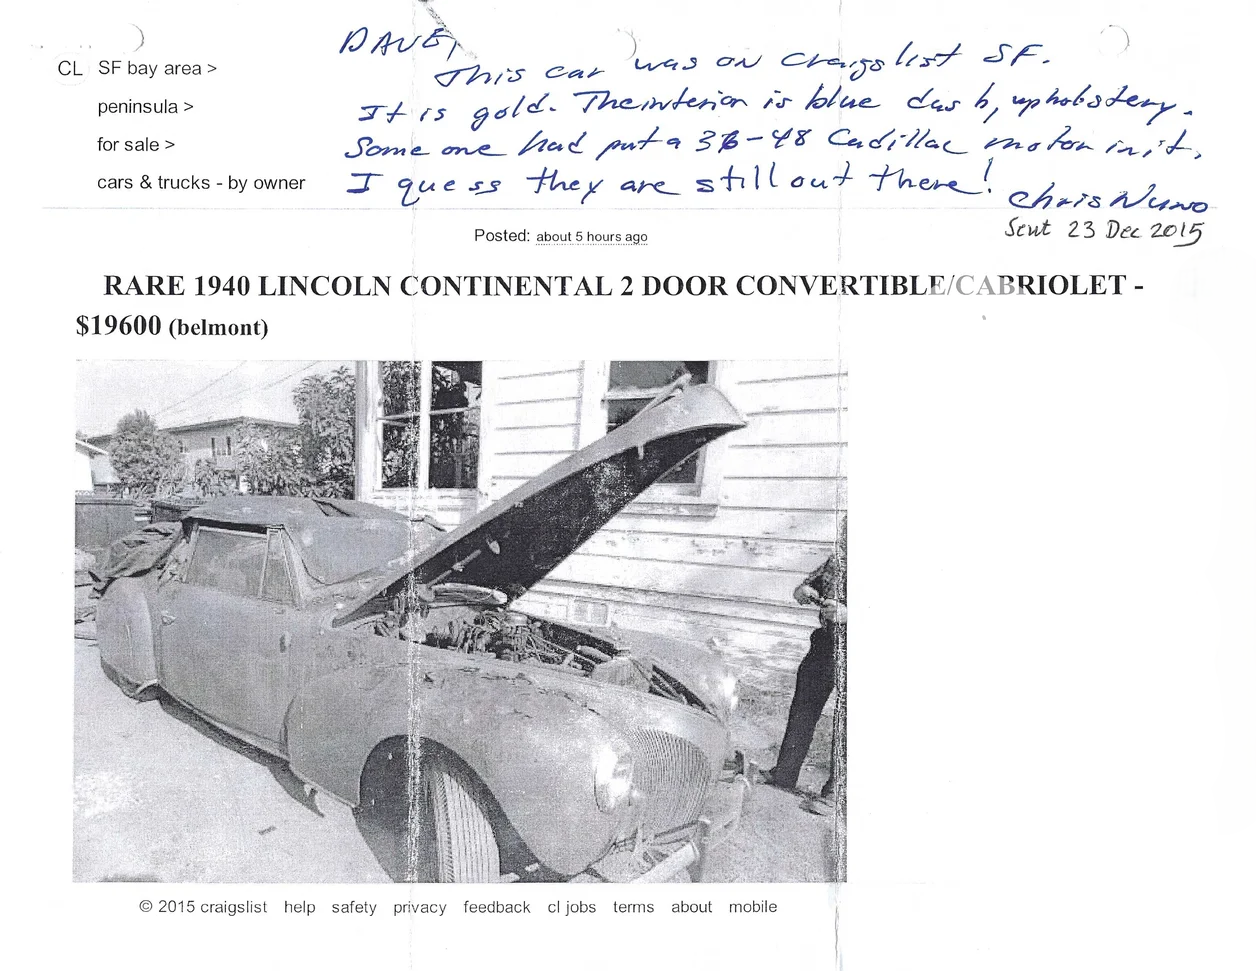 DAVE,
This car was on Craigslist SF.
It is gold. The interior is blue dash, upholstery.
Some one had put a 36-48 Cadillac motor in it.
I guess they are still out there!
Chris Nuno
Sent 23 Dec 2015
CL SF bay area >
peninsula >
for sale >
cars & trucks - by owner
Posted: about 5 hours ago
RARE 1940 LINCOLN CONTINENTAL 2 DOOR CONVERTIBLE/CABRIOLET -
$19600 (belmont)
© 2015 craigslist help safety privacy feedback cl jobs terms about mobile